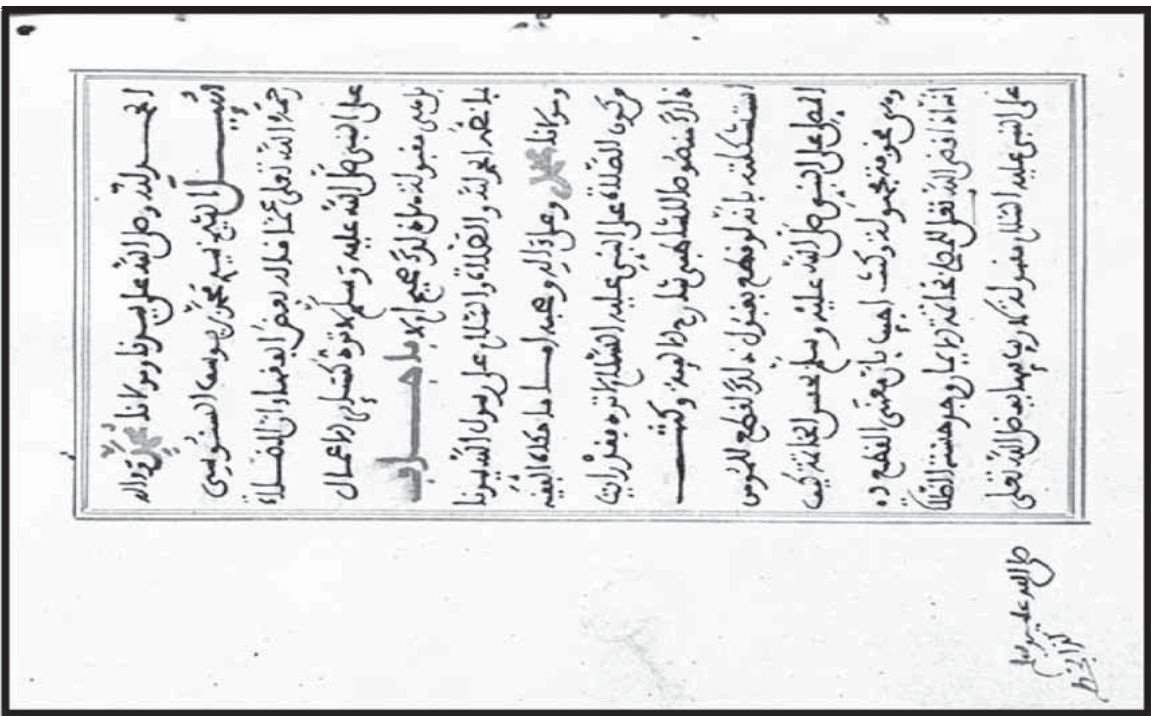 الحمد لله وصلى الله على سيدنا ومولانا محمد وآله
وسئل الشيخ سيدي محمد بن يوسف السنوسي
رحمه الله تعلى عما قاله بعض الفقهاء ان الصلاة
على النبي صلى الله عليه وسلم لا ترد كسائر الاعمال
بل هي مقبولة هل ذلك صحيح ام لا فاجاب
بما نصه الحمد لله والصلاة والسلام على رسول الله سيدنا
ومولانا محمد وعلى ءاله وصحبه اما ما حكاه الفقيه
من كون الصلاة على النبي عليه السلام لا ترد فقد رايت
ذلك منصوصا للشاطبي شارح الالفية وكنت
استشكلته بانه لو قطع بقبول ذلك لقطع للمومن
المصلي على النبي صلى الله عليه وسلم بحسن الخاتمة كيف
وهي مجهولة وكنت اجيب بان معنى القطع
انه اذا قضى الله تعلى للمصلي بخاتمة الايمان وجد حسنة الصلاة
على النبي عليه السلام مقبولة لا ريب فيها بفضل الله تعلى
صلى الله عليه وسلم
كذا بخط